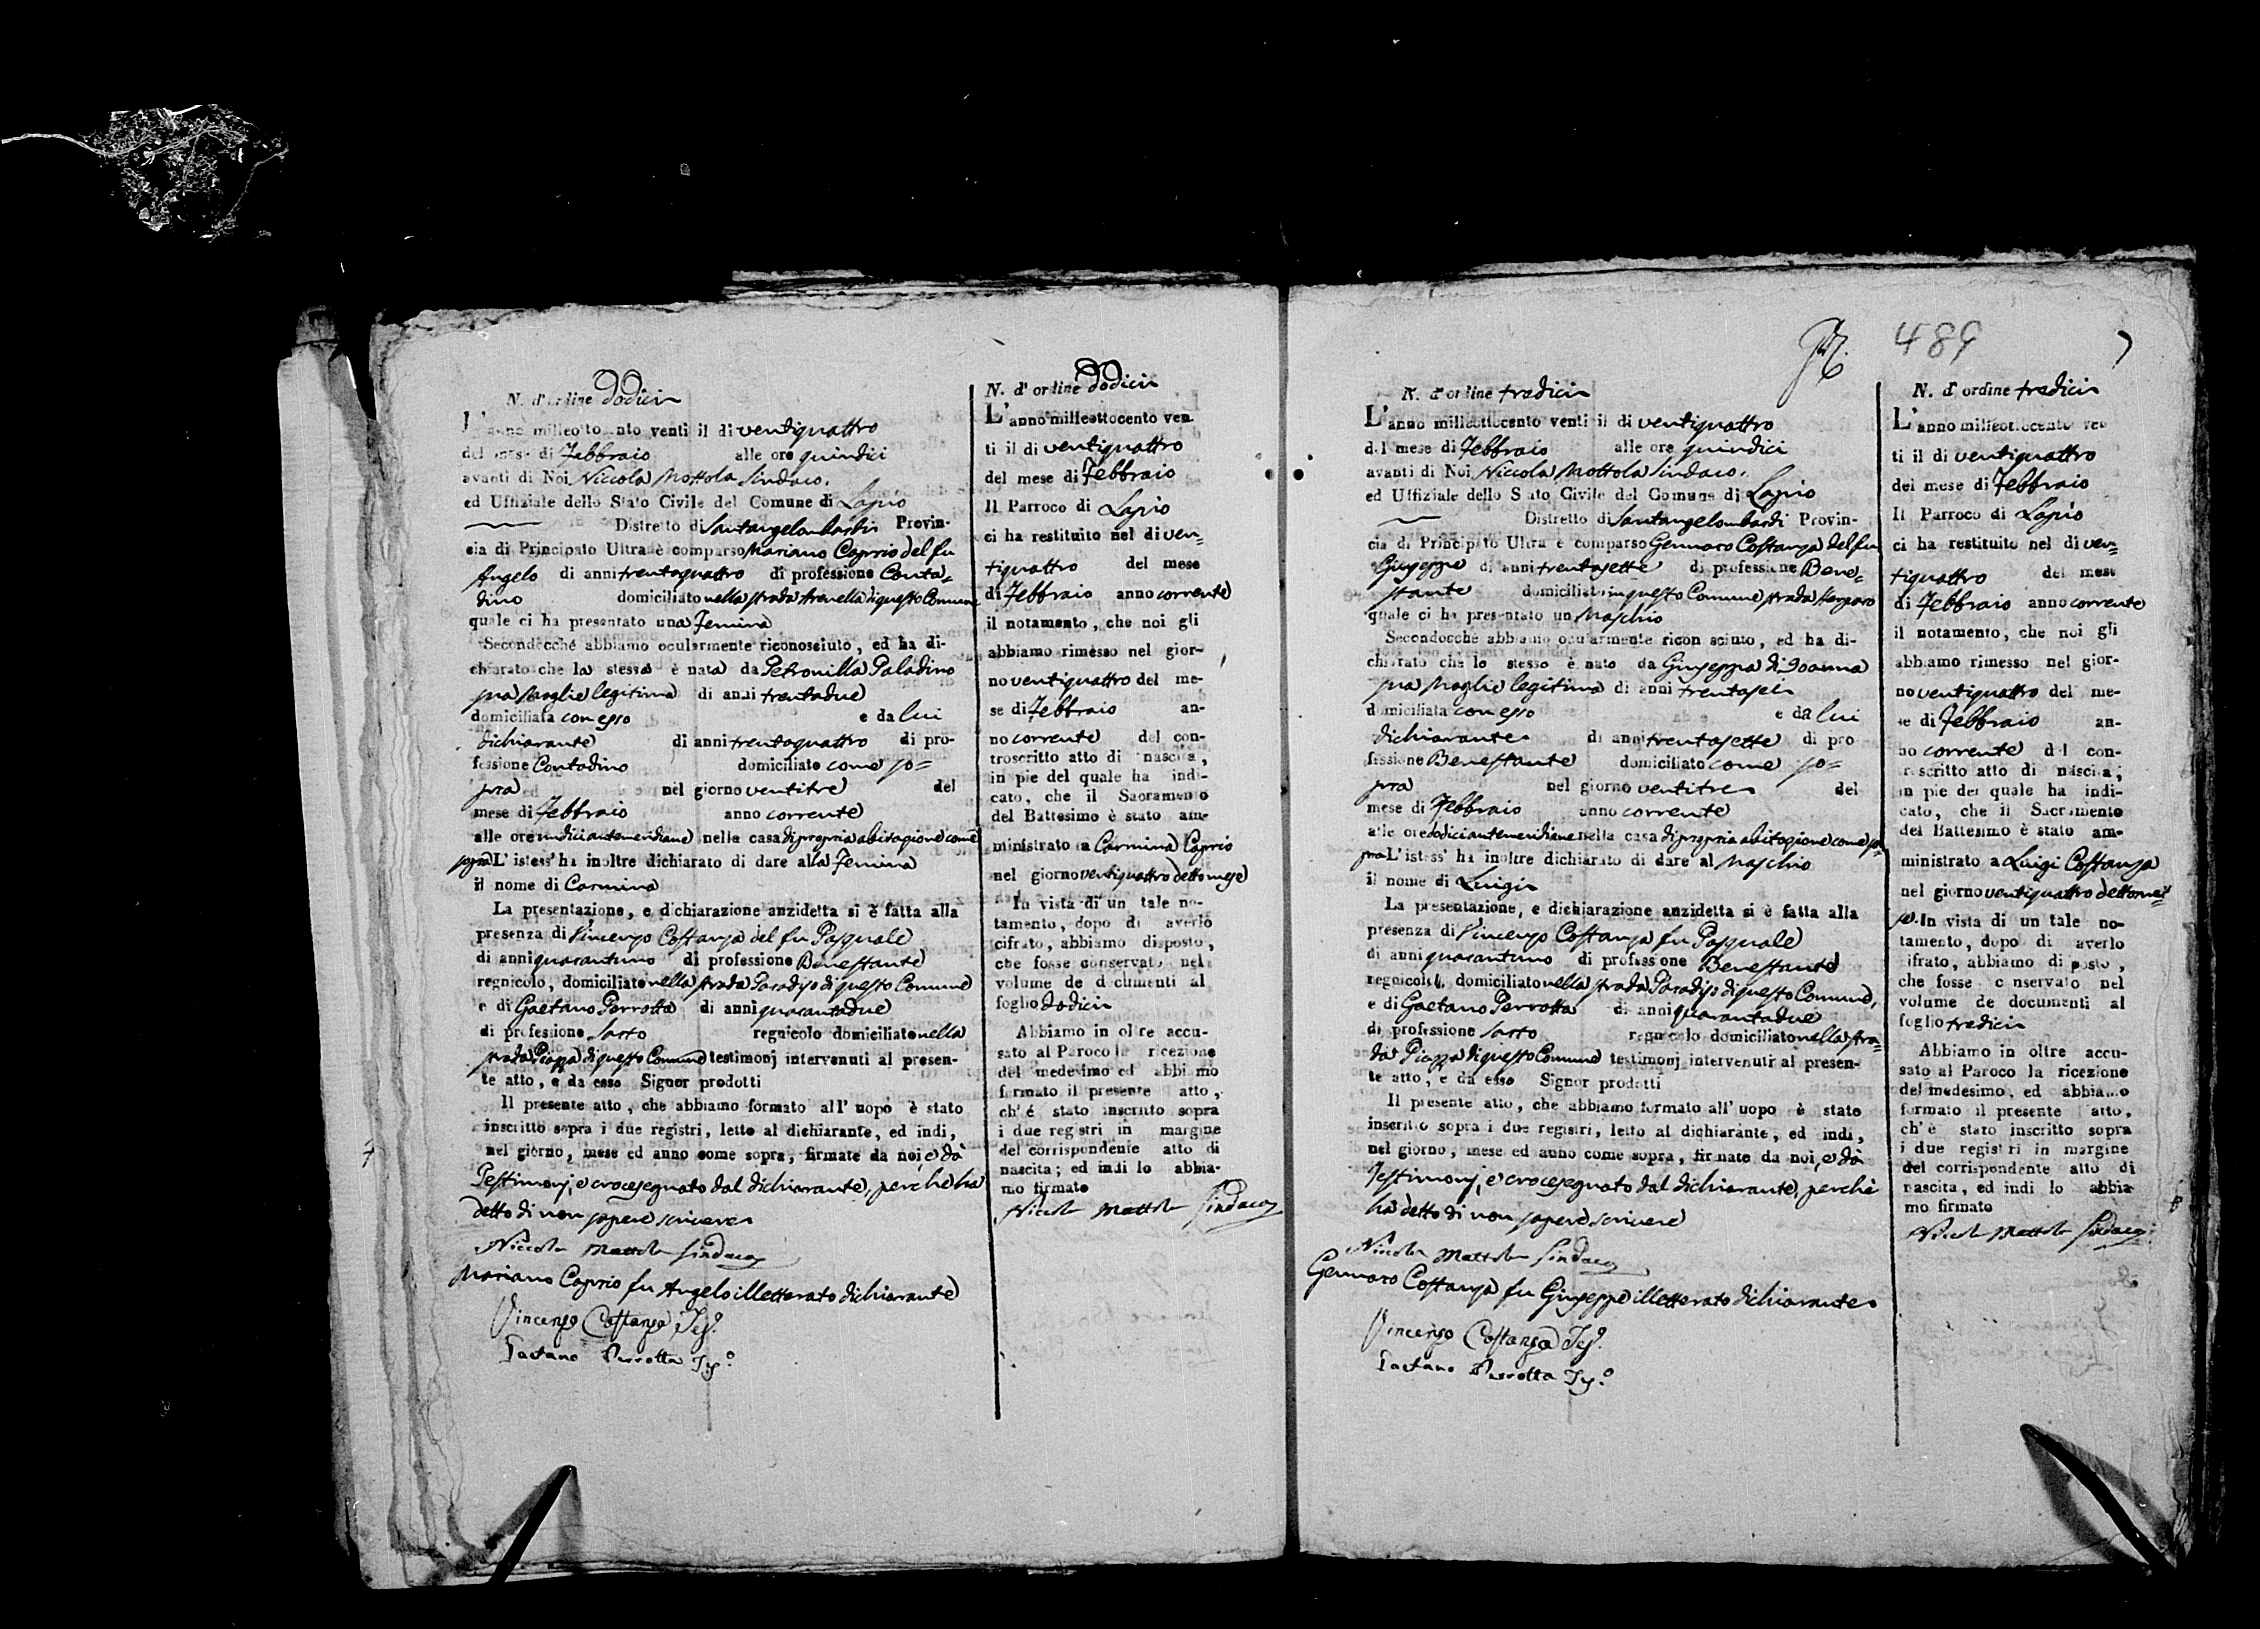 N. d'ordine dodici
L'anno milleottocento venti il di ventiquattro
del mese di Febbraio alle ore quindici
avanti di Noi Niccola Mottola Sindaco.
ed Uffiziale dello Stato Civile del Comune di Lapio
Distretto di Santangelombardi Provin-
cia di Principato Ultra è comparso Mariano Caprio del fu
Angelo di anni trentaquattro di professione Conta=
dino domiciliato nella strada Arenella di questo Comune
quale ci ha presentato una Femina
Secondocché abbiamo ocularmente riconosciuto, ed ha di-
chiarato che la stessa è nata da Petronilla Paladino
sua Moglie legitima di anni trentadue
domiciliata con esso e da lui
dichiarante di anni trentaquattro di pro-
fessione Contadino domiciliato come so=
pra nel giorno ventitre del
mese di Febbraio anno corrente
alle ore undici antemeridiane nella casa di propria abitazione come
sopra L'istess' ha inoltre dichiarato di dare alla Femina
il nome di Carmina
La presentazione, e dichiarazione anzidetta si è fatta alla
presenza di Vincenzo Costanza del fu Pasquale
di anni quarantuno di professione Benestante
regnicolo, domiciliato nella strada Paradiso di questo Comune
e di Gaetano Perrotta di anni quarantadue
di professione Sarto regnicolo domiciliato nella
strada Piazza di questo Comune testimonj intervenuti al presen-
te atto, e da esso Signor prodotti
Il presente atto, che abbiamo formato all' uopo è stato
inscritto sopra i due registri, letto al dichiarante, ed indi,
nel giorno, mese ed anno come sopra, firmato da noi, e da
Testimonj, e crocesegnato dal dichiarante, perche ha
detto di non sapere scrivere
Niccola Mottola Sindaco
Mariano Caprio fu Angelo illetterato dichiarante
Vincenzo Costanza Tes.º
Gaetano Perrotta Tes.º
N. d'ordine dodici
L'anno milleottocento ven
ti il di ventiquattro
del mese di Febbraio
Il Parroco di Lapio
ci ha restituito nel di ven=
tiquattro del mese
di Febbraio anno corrente
il notamento, che noi gli
abbiamo rimesso nel gior-
no ventiquattro del me-
se di Febbraio an-
no corrente del con-
troscritto atto di nascita,
in pie del quale ha indi-
cato, che il Sacramento
del Battesimo è stato am-
ministrato a Carmina Caprio
nel giorno ventiquattro detto mese
In vista di un tale no-
tamento, dopo di averlo
cifrato, abbiamo disposto,
che fosse conservato nel
volume de documenti al
foglio dodici
Abbiamo in oltre accu-
sato al Paroco la ricezione
del medesimo ed abbiamo
formato il presente atto,
ch'é stato inscritto sopra
i due registri in margine
del corrispondente atto di
nascita; ed indi lo abbia-
mo firmato
Niccola Mottola Sindaco
489
7
N. d'ordine tredici
L'anno milleottocento venti il di ventiquattro
del mese di Febbraio alle ore quindici
avanti di Noi Niccola Mottola Sindaco.
ed Uffiziale dello Stato Civile del Comune di Lapio
Distretto di Santangelombardi Provin-
cia di Principato Ultra è comparso Gennaro Costanza del fu
Giuseppe di anni trentasette di professione Bene=
stante domiciliato in questo Comune strada
quale ci ha presentato un Maschio
Secondocché abbiamo ocularmente riconosciuto, ed ha di-
chiarato che lo stesso è nato da Giuseppa di Joanna
sua Moglie legitima di anni trentasei
domiciliata con esso e da lui
dichiarante di anni trentasette di pro
fessione Benestante domiciliato come so=
pra nel giorno ventitre del
mese di Febbraio anno corrente
alle ore dodici antemeridiane nella casa di propria abitazione come so=
pra L'istess' ha inoltre dichiarato di dare al Maschio
il nome di Luigi
La presentazione, e dichiarazione anzidetta si è fatta alla
presenza di Vincenzo Costanza fu Pasquale
di anni quarantuno di professione Benestante
regnicolo, domiciliato nella strada Paradiso di questo Comune,
e di Gaetano Perrotta di anni quarantadue
di professione Sarto regnicolo domiciliato nella stra=
da Piazza di questo Comune testimonj intervenuti al presen-
te atto, e da esso Signor prodotti
Il presente atto, che abbiamo formato all' uopo è stato
inscritto sopra i due registri, letto al dichiarante, ed indi,
nel giorno, mese ed anno come sopra, firmato da noi, e da
Testimonj, e crocesegnato dal dichiarante, perchè
ha detto di non sapere scrivere
Niccola Mottola Sindaco
Gennaro Costanza fu Giuseppe illetterato dichiarante
Vincenzo Costanza Tes.º
Gaetano Perrotta Tes.º
N. d'ordine tredici
L'anno milleottocento ven
ti il di ventiquattro
del mese di Febbraio
Il Parroco di Lapio
ci ha restituito nel di ven=
tiquattro del mese
di Febbraio anno corrente
il notamento, che noi gli
abbiamo rimesso nel gior-
no ventiquattro del me-
se di Febbraio an-
no corrente del con-
troscritto atto di nascita;
in pie del quale ha indi-
cato, che il Sacramento
del Battesimo è stato am-
ministrato a Luigi Costanza
nel giorno ventiquattro detto me=
se. In vista di un tale no-
tamento, dopo di averlo
cifrato, abbiamo disposto,
che fosse conservato nel
volume de documenti al
foglio tredici
Abbiamo in oltre accu-
sato al Paroco la ricezione
del medesimo, ed abbiamo
formato il presente atto,
ch'è stato inscritto sopra
i due registri in margine
del corrispondente atto di
nascita, ed indi lo abbia-
mo firmato
Niccola Mottola Sindaco